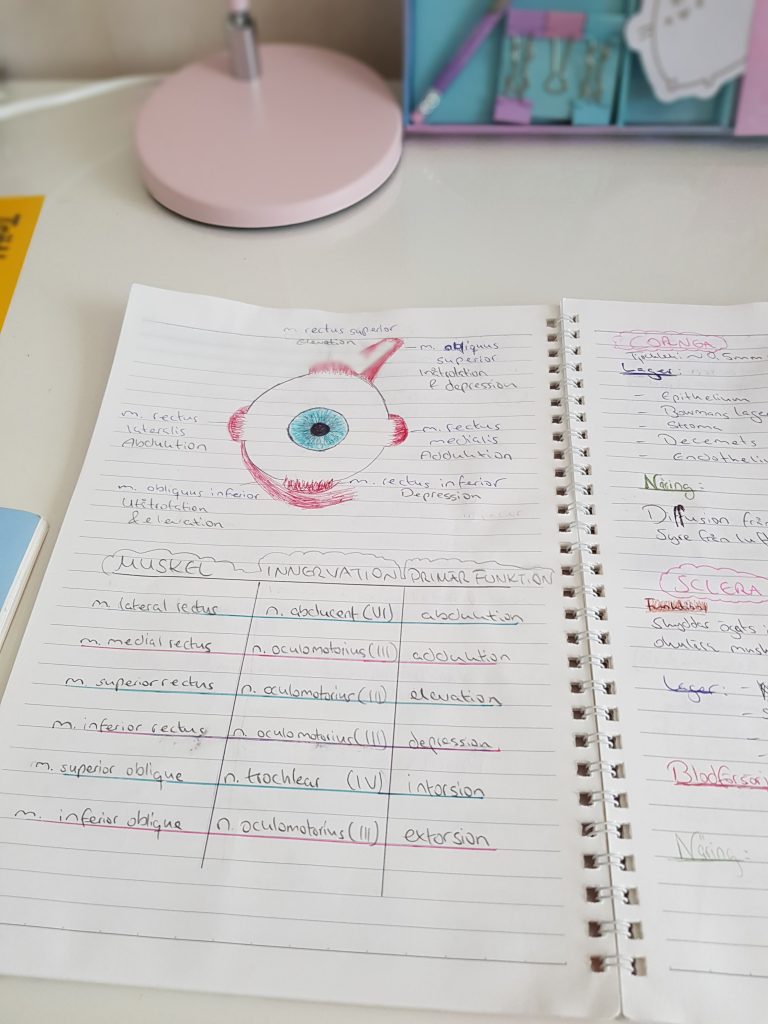 m. rectus superior
elevation
m. obliquus
superior
& depression
m. rectus
lateralis
Abduktion
m. rectus
medialis
Adduktion
m. obliquus inferior
Utåtrotation
& elevation
m. rectus inferior
Depression
MUSKEL INNERVATION PRIMÄR FUNKTION
m. lateral rectus n. abducent (VI) abduktion
m. medial rectus n. oculomotorius (III) adduktion
m. superior rectus n. oculomotorius (III) elevation
m. inferior rectus n. oculomotorius (III) depression
m. superior oblique n. trochlear (IV) intorsion
m. inferior oblique n. oculomotorius (III) extorsion
CORNEA
Tjocklek ~ 0,5mm
Lager:
- Epithelium
- Bowmans lager
- Stroma
- Decemets
- Endothelium
Näring:
Diffusion från
Syre från luft
SCLERA
Funktion
skyddar ögats
Lager: -
Blodförsörj
Näring: